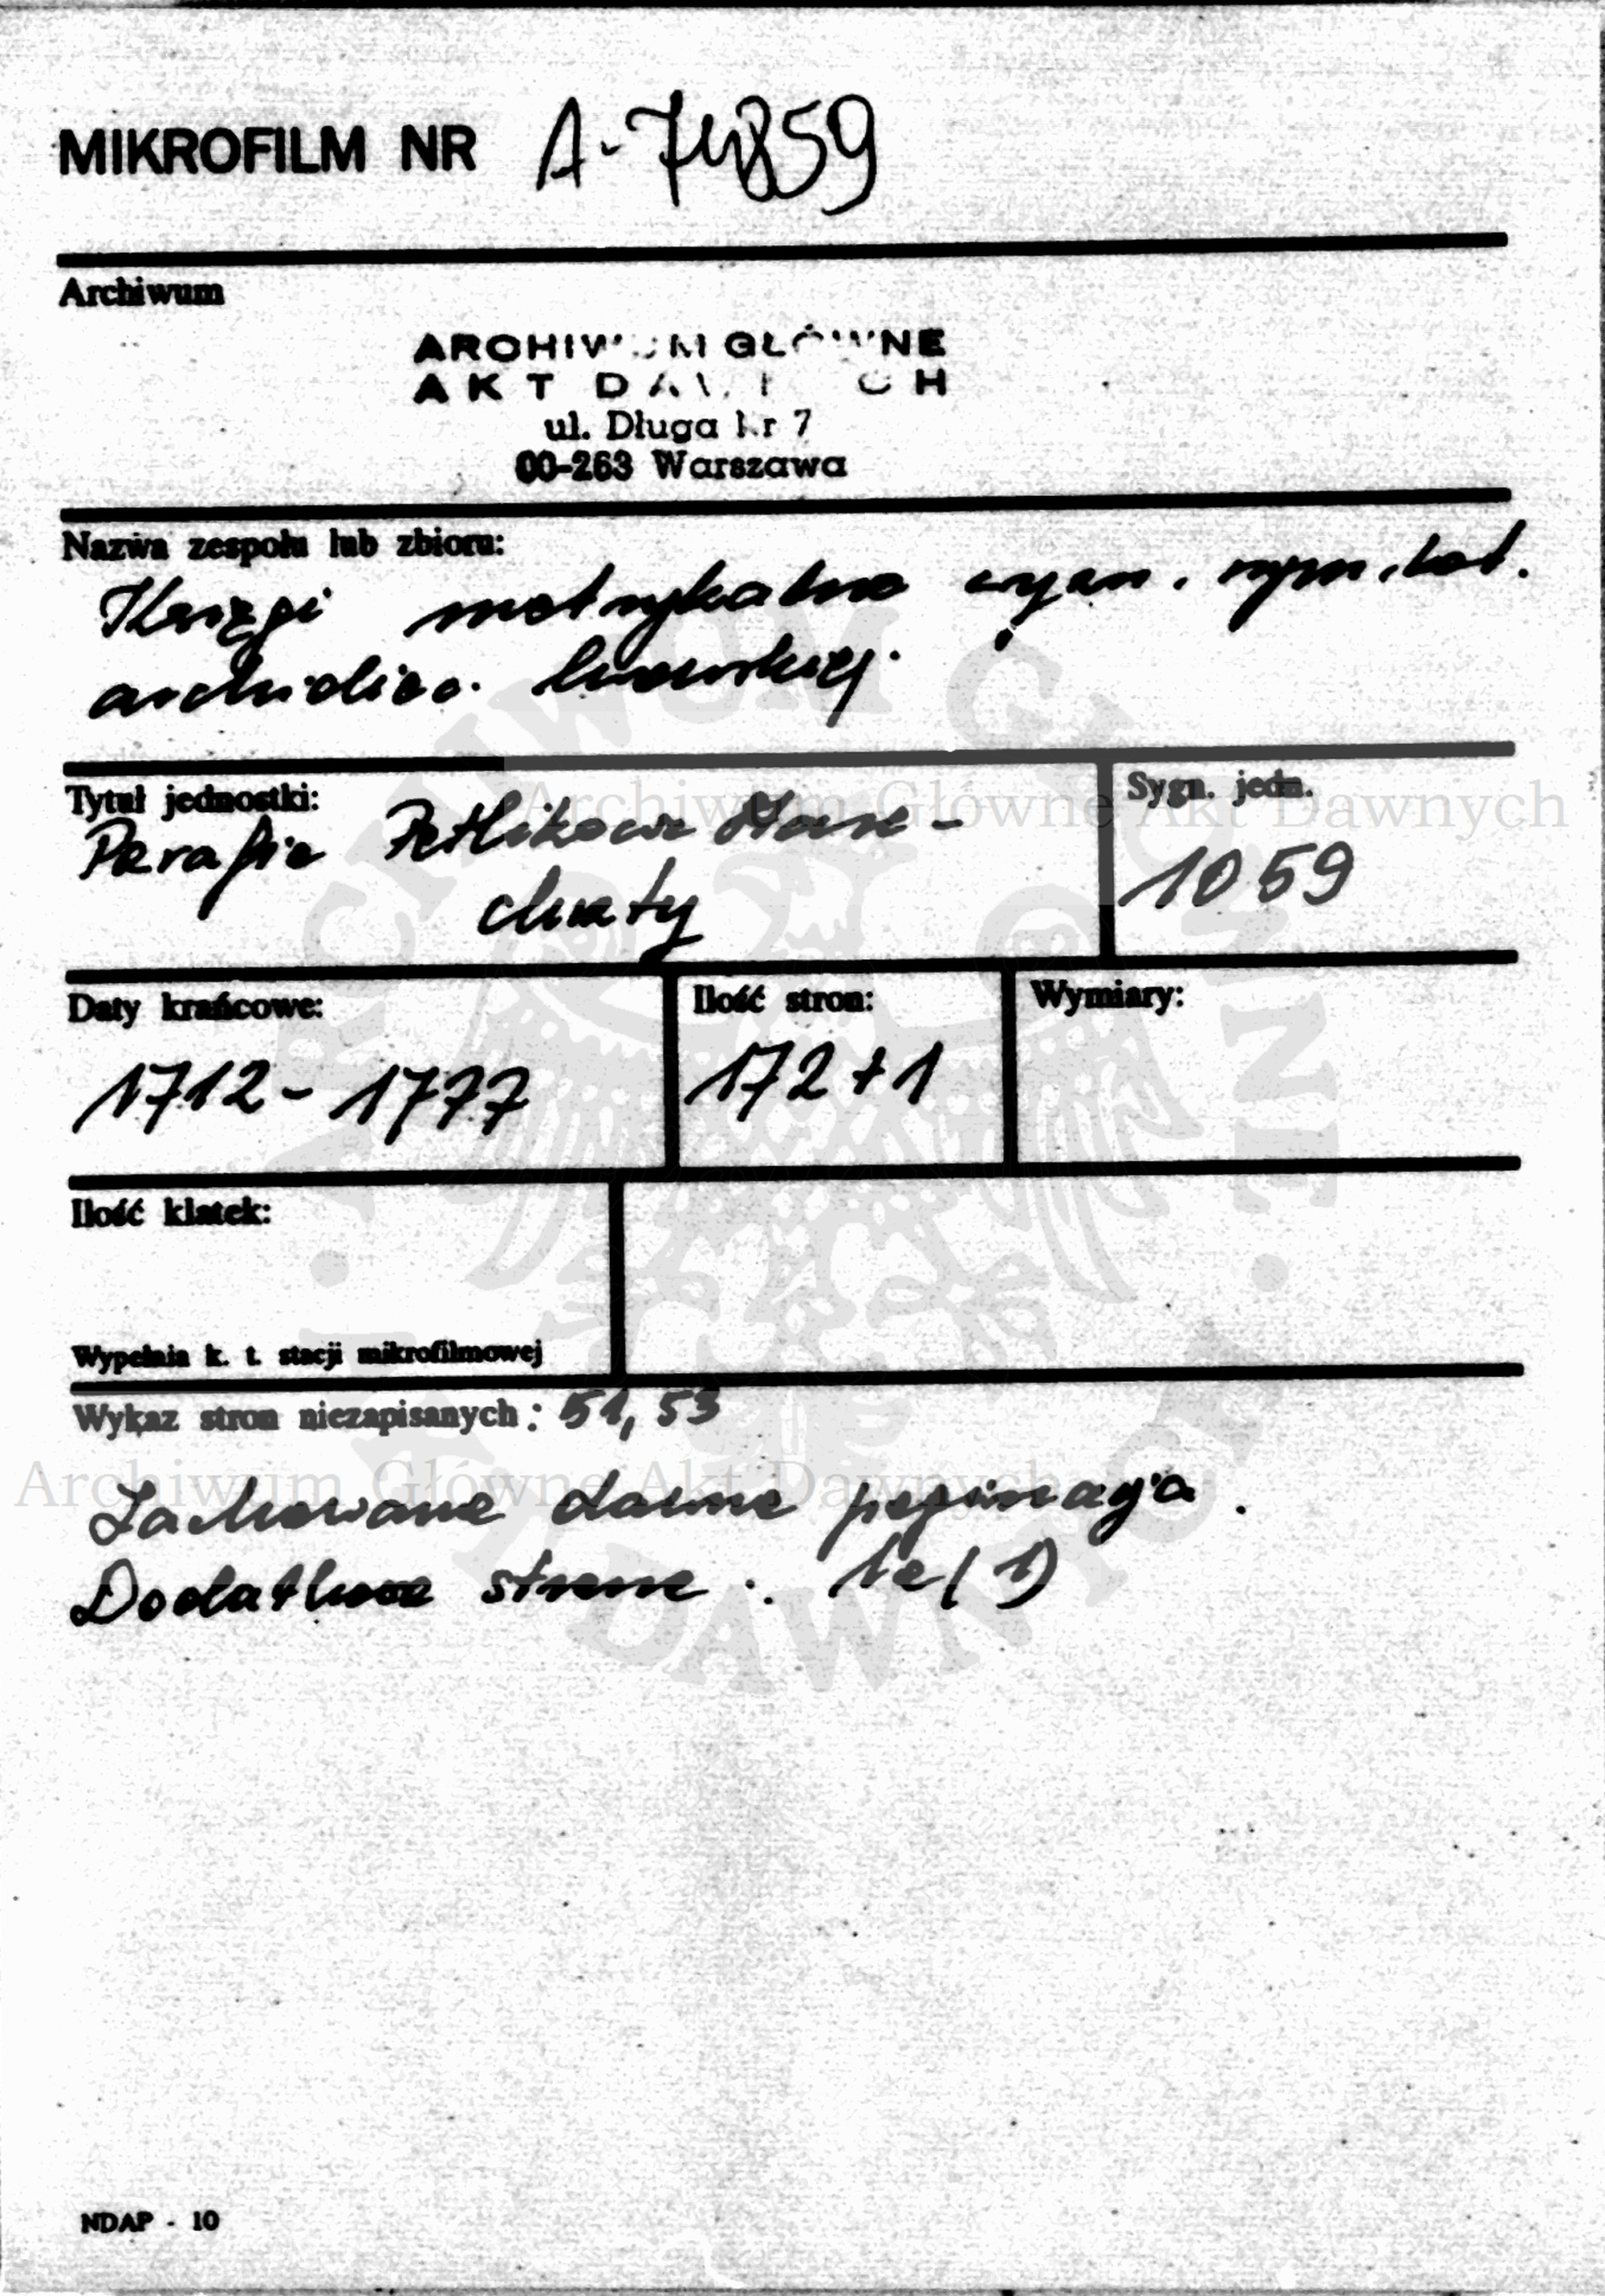 MIKROFILM NR A-74859
Archiwum
ARCHIWUM GŁÓWNE
AKT DAWNYCH
ul. Długa Nr 7
00-263 Warszawa
Nazwa zespołu lub zbioru:
Księgi metrykalne wyzn. rzym. kat.
archidiec. lwowskiej
Tytuł jednostki:
Parafia Petlikowce Stare -
chrzty
Sygn. jedn.
1059
Daty krańcowe:
1712 - 1777
Ilość stron:
172 + 1
Wymiary:
Ilość klatek:
Wypełnia k. t. stacji mikrofilmowej
Wykaz stron niezapisanych: 51, 53
Zachowano dawną paginację.
Dodatkowe strone: 1a (1)
NDAP - 10
Archiwum Główne Akt Dawnych
Archiwum Główne Akt Dawnych
ARCHIWUM GŁÓWNE AKT DAWNYCH